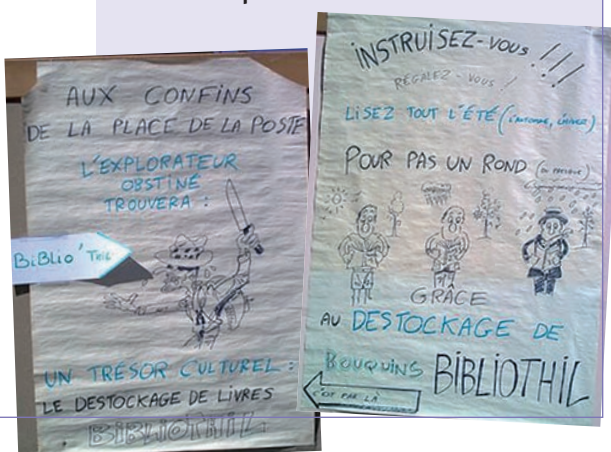 AUX CONFINS
DE LA PLACE DE LA POSTE
L'EXPLORATEUR
OBSTINÉ
TROUVERA :
BiBLio'THiL
UN TRÉSOR CULTUREL :
LE DESTOCKAGE DE LIVRES
BIBLIOTHIL
iNSTRUiSEZ-VOUS !!!
RÉGALEZ-VOUS !
LiSEZ TOUT L'ÉTÉ (L'AUTOMNE, L'HIVER)
POUR PAS UN ROND (OU PRESQUE)
GRÂCE
AU DESTOCKAGE DE
BOUQUiNS BIBLIOTHIL
C'EST PAR LÀ